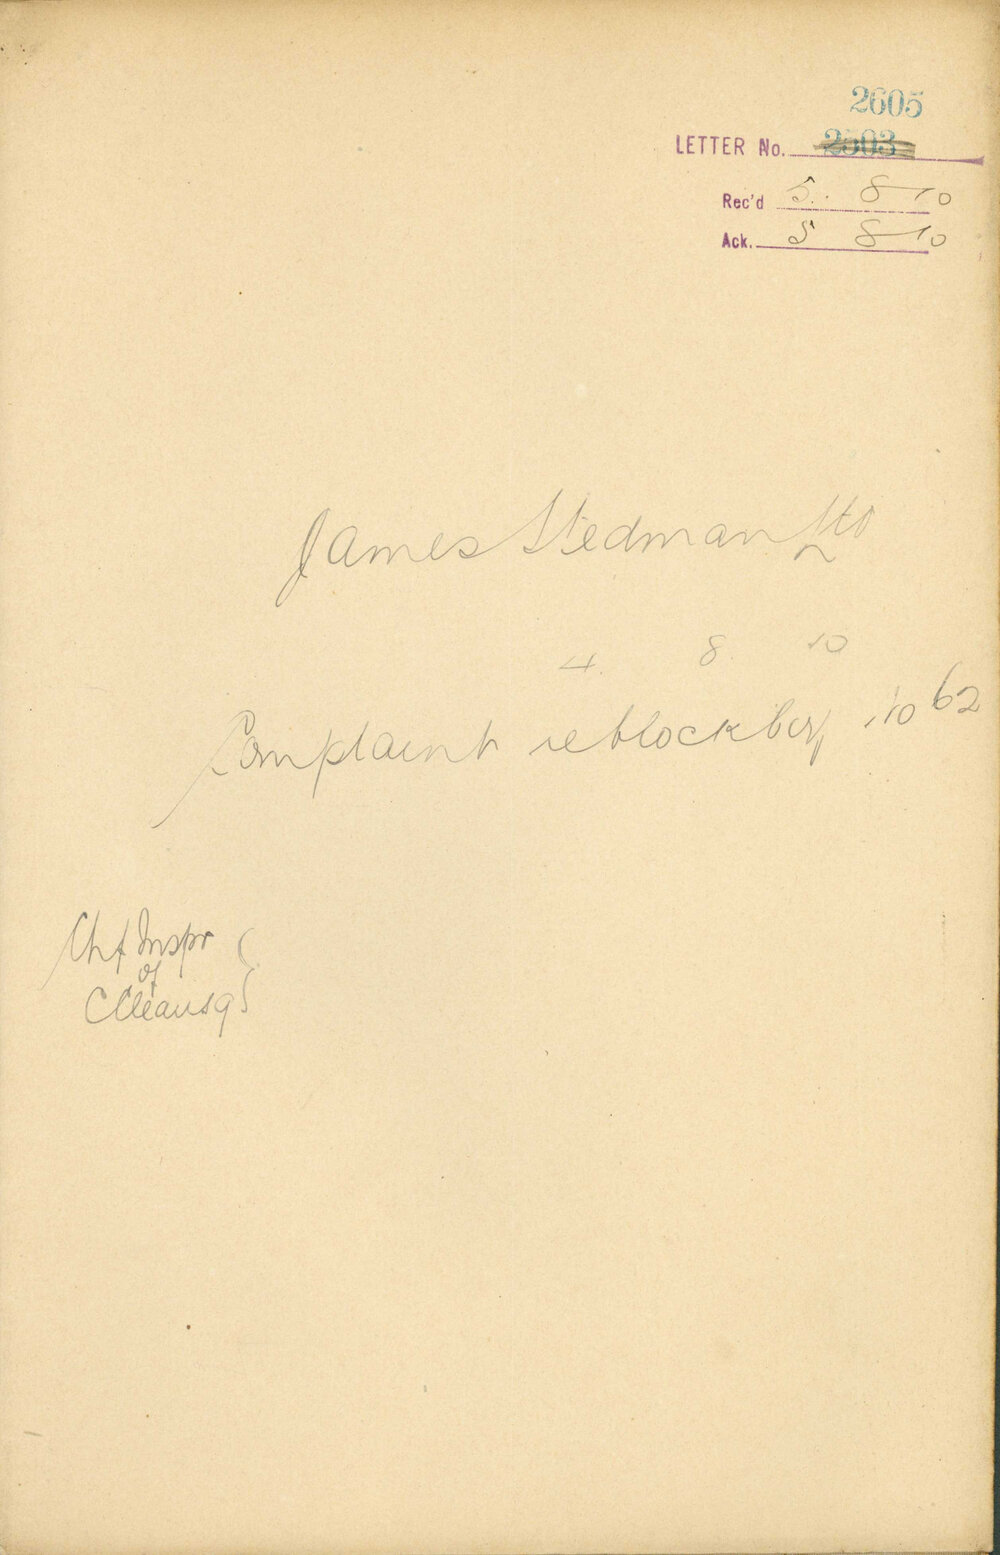 2605
LETTER No. 2503
Rec'd 5. 8 10
Ack. 5 8 10
James Stedman Ltd
4. 8. 10
Complaint re block boy No 62
Chf Inspr
of
C Cleansg